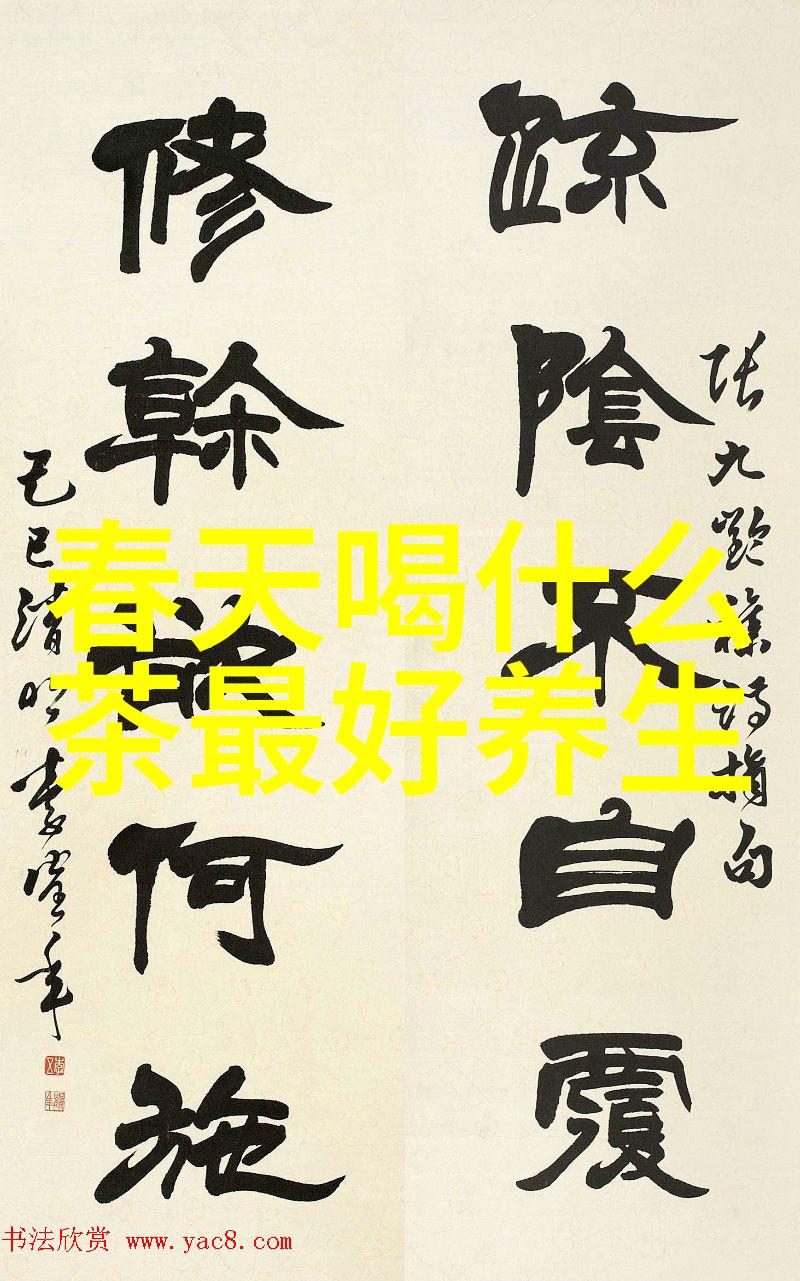 張九齡雜詩摘句
疏陰不自覆
修榦欲何施
己巳清明
春天喝什么
茶最好养生
书法欣赏 www.yac8.com